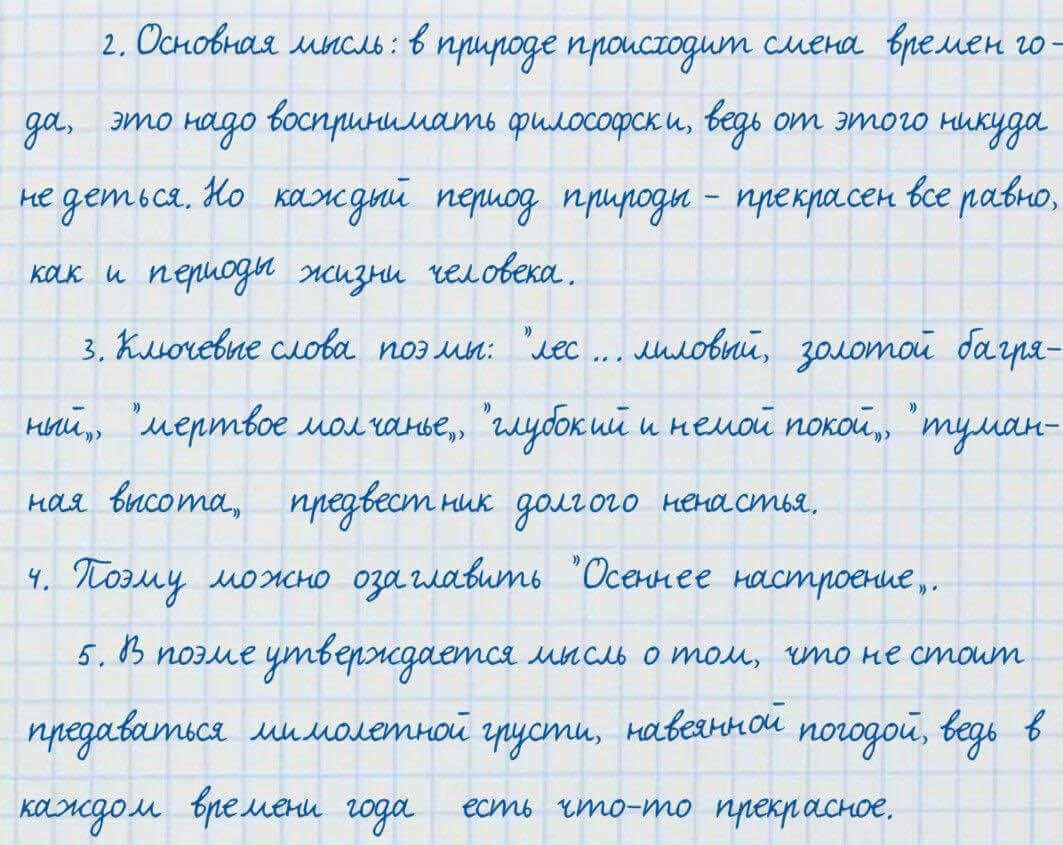 2. Основная мысль: в природе происходит смена времен го-
да, это надо воспринимать философски, ведь от этого никуда
не деться. Но каждый период природы - прекрасен все равно,
как и периоды жизни человека.
3. Ключевые слова поэмы: "лес ... лиловый, золотой багря-
ный„, "мертвое молчанье„, "глубокий и немой покой„, "туман-
ная высота„ предвестник долгого ненастья.
4. Поэму можно озаглавить "Осеннее настроение„.
5. В поэме утверждается мысль о том, что не стоит
предаваться мимолетной грусти, навеянной погодой, ведь в
каждом времени года есть что-то прекрасное.